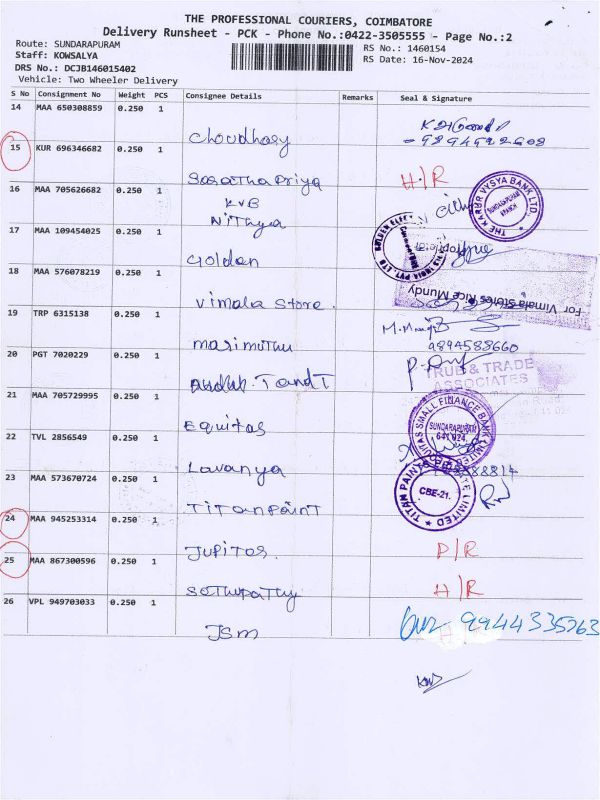 THE PROFESSIONAL COURIERS, COIMBATORE
Delivery Runsheet - PCK - Phone No.:0422-3505555 - Page No.:2
Route: SUNDARAPURAM
RS No.: 1460154
Staff: KOWSALYA
RS Date: 16-Nov-2024
DRS No.: DCJB146015402
Vehicle: Two Wheeler Delivery
S No Consignment No Weight PCS Consignee Details Remarks Seal & Signature
14 MAA 650308859 0.250 1 Choudhary
15 KUR 696346682 0.250 1 Sarathapriya H/R
16 MAA 705626682 0.250 1 KVB Nithya
THE KARUR VYSYA BANK LTD. SUNDARAPURAM BRANCH
17 MAA 109454025 0.250 1 Golden
18 MAA 576078219 0.250 1 Vimala Store.
For Vimala Stores Rice Mundy
19 TRP 6315138 0.250 1 Marimuthu
9894588660
20 PGT 7020229 0.250 1 T and T
TRUE & TRADE
ASSOCIATES
21 MAA 705729995 0.250 1 Equitas
EQUITAS SMALL FINANCE BANK LIMITED SUNDARAPURAM 641 024.
22 TVL 2856549 0.250 1 Lavanya
23 MAA 573670724 0.250 1 Titan Paint
TITAN PAINT PRIVATE LIMITED CBE-21.
24 MAA 945253314 0.250 1 Jupitar. D/R
25 MAA 867300596 0.250 1 Sethupathy H/R
26 VPL 949703033 0.250 1 JSM 9944335763